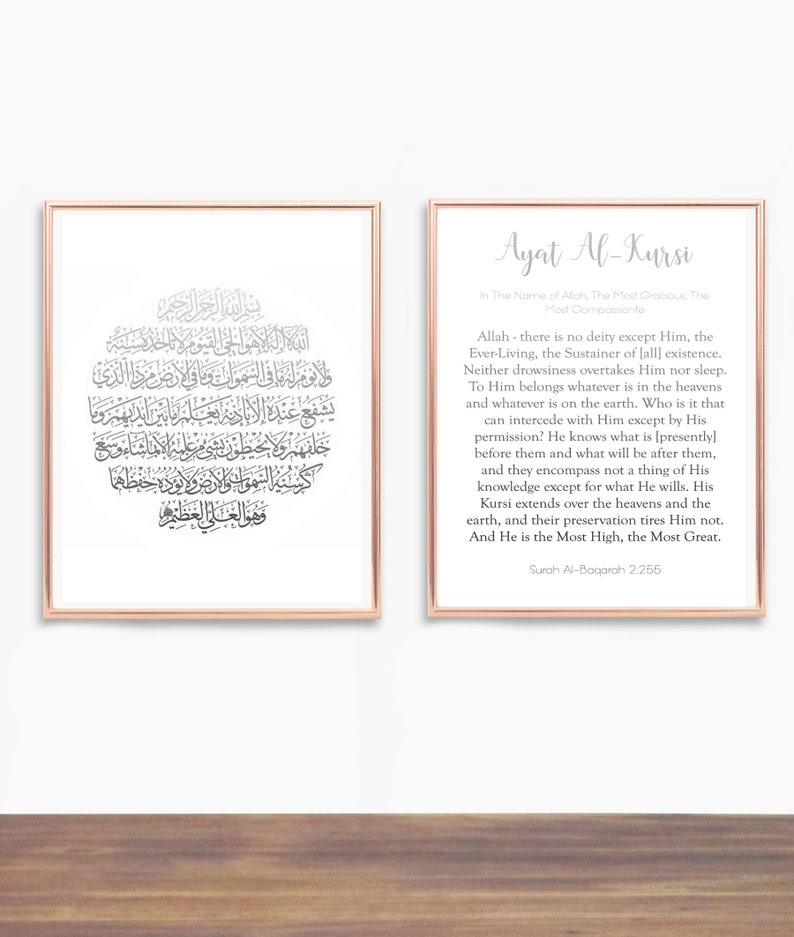 بسم الله الرحمن الرحيم
الله لا إله إلا هو الحي القيوم لا تأخذه سنة
ولا نوم له ما في السموات وما في الأرض من ذا الذي
يشفع عنده إلا بإذنه يعلم ما بين أيديهم وما
خلفهم ولا يحيطون بشيء من علمه إلا بما شاء وسع
كرسيه السموات والأرض ولا يؤده حفظهما
وهو العلي العظيم
Ayat Al-Kursi
In The Name of Allah, The Most Gracious, The
Most Compassionte
Allah - there is no deity except Him, the
Ever-Living, the Sustainer of [all] existence.
Neither drowsiness overtakes Him nor sleep.
To Him belongs whatever is in the heavens
and whatever is on the earth. Who is it that
can intercede with Him except by His
permission? He knows what is [presently]
before them and what will be after them,
and they encompass not a thing of His
knowledge except for what He wills. His
Kursi extends over the heavens and the
earth, and their preservation tires Him not.
And He is the Most High, the Most Great.
Surah Al-Baqarah 2:255